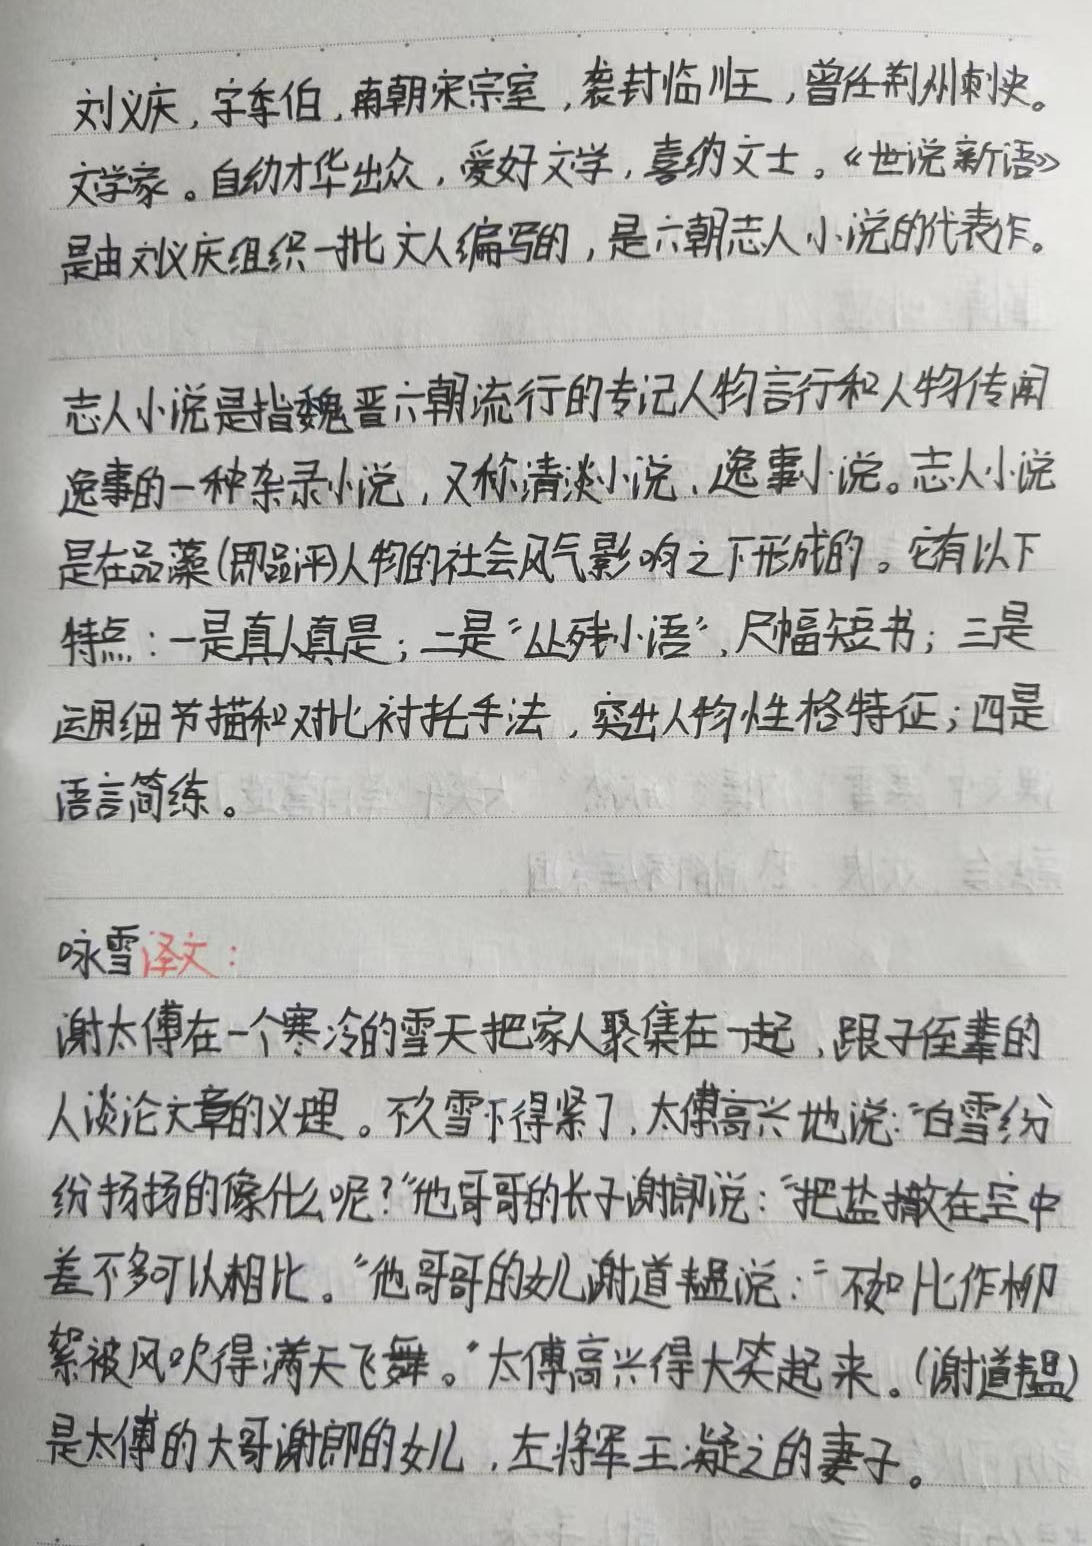 刘义庆，字季伯，南朝宋宗室，袭封临川王，曾任荆州刺史。
文学家。自幼才华出众，爱好文学，喜纳文士。《世说新语》
是由刘义庆组织一批文人编写的，是六朝志人小说的代表作。
志人小说是指魏晋六朝流行的专记人物言行和人物传闻
逸事的一种杂录小说，又称清淡小说、逸事小说。志人小说
是在品藻(即品评)人物的社会风气影响之下形成的。它有以下
特点：一是真人真是；二是“丛残小语”，尺幅短书；三是
运用细节描和对比衬托手法，突出人物性格特征；四是
语言简练。
咏雪译文：
谢太傅在一个寒冷的雪天把家人聚集在一起，跟子侄辈的
人谈论文章的义理。不久雪下得紧了，太傅高兴地说：“白雪纷
纷扬扬的像什么呢？”他哥哥的长子谢郎说：“把盐撒在空中
差不多可以相比。”他哥哥的女儿谢道韫说：“不如比作柳
絮被风吹得满天飞舞。”太傅高兴得大笑起来。(谢道韫)
是太傅的大哥谢郎的女儿，左将军王凝之的妻子。